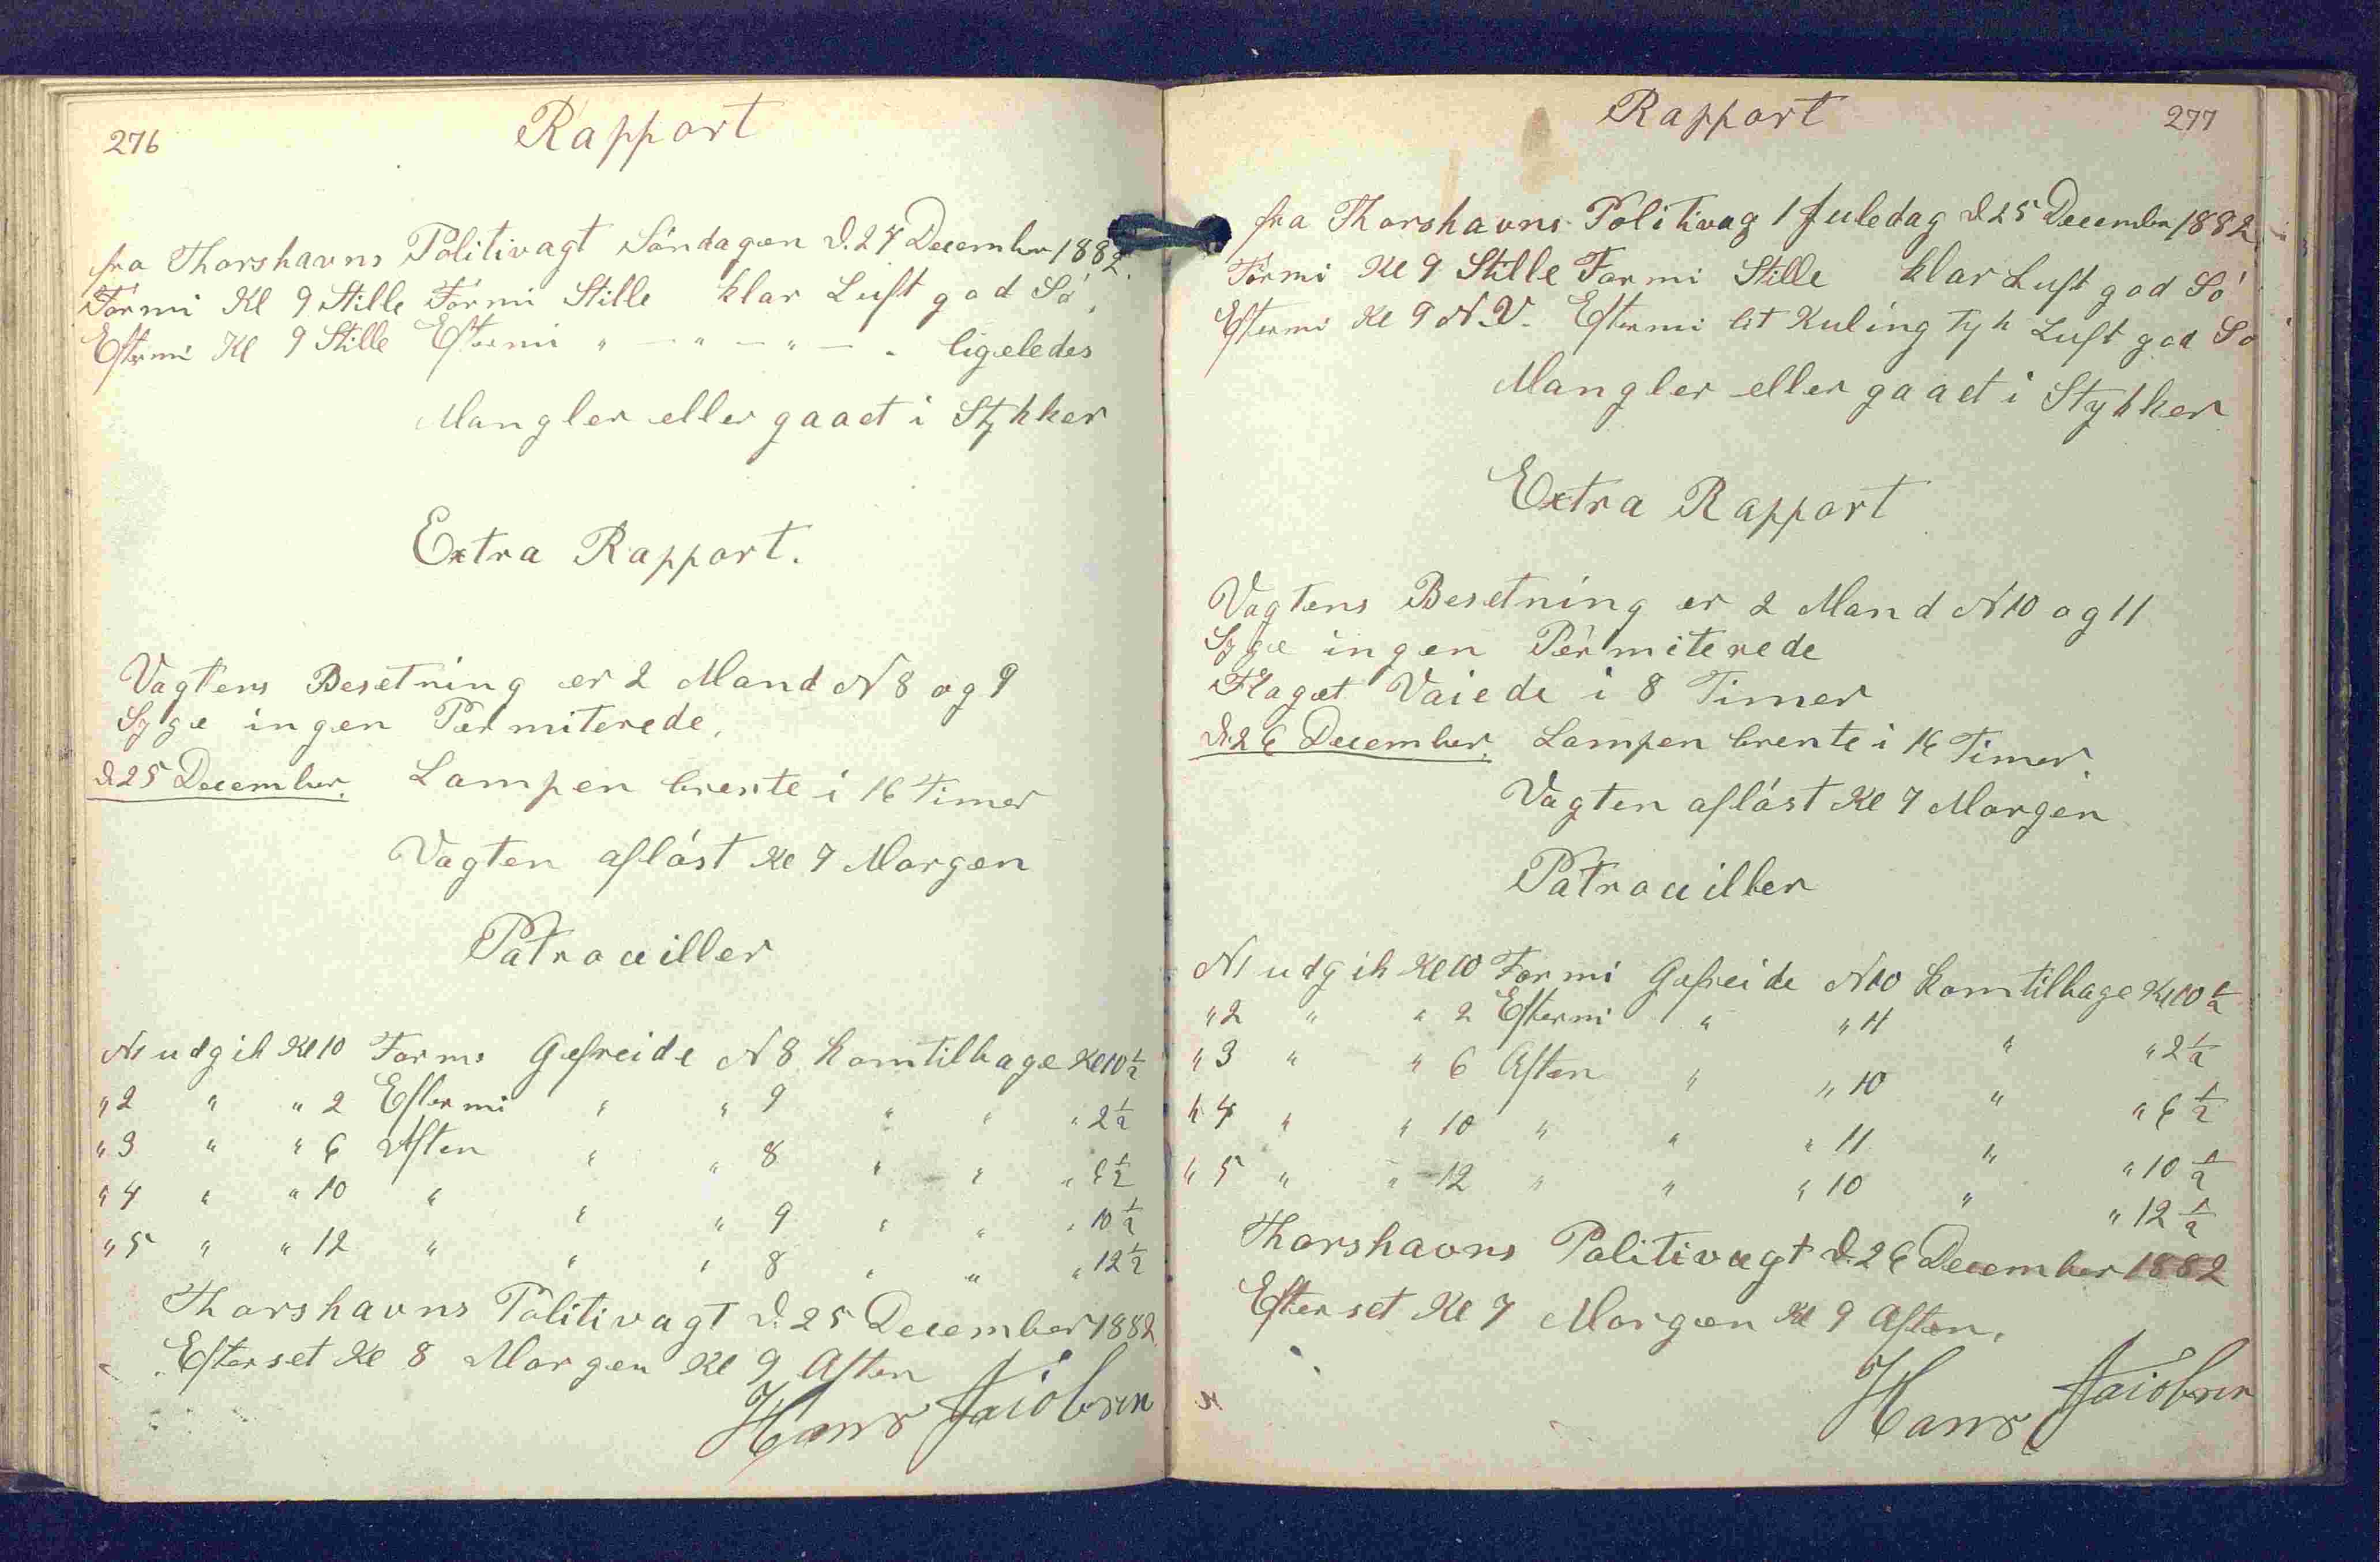 276
Rapport
fra Thorshavns Politivagt Söndagen d. 24 December 1882.
Formi Kl 9 Stille Formi Stille klar Luft god Sö,
Eftermi Kl 9 Stille Eftermi " — " — " — " ligeledes
Mangler eller gaaet i Stykker
Extra Rapport.
Vagtens Besetning er 2 Mand N 8 og 9
Syge ingen Permiterede,
d. 25 December. Lampen brente i 16 Timer
Vagten aflöst Kl 7 Morgen
Patrouiller
N1 udgik Kl 10 Formi Gefreide N 8 kom tilbage Kl 10 1/2
" 2 " " 2 Eftermi " " 9 " " " 2 1/2
" 3 " " 6 Aften " " 8 " " " 6 1/2
" 4 " " 10 " " " 9 " " " 10 1/2
" 5 " " 12 " " " 8 " " " 12 1/2
Thorshavns Politivagt d. 25 December 1882
Efterset Kl 8 Morgen Kl 9 Aften
Hans Jaiobsen
277
Rapport
fra Thorshavns Politivag 1 Juledag d 25 December 1882.
Formi Kl 9 Stille Formi Stille klar Luft god Sö
Eftermi Kl 9 N.V. Eftermi lit Kuling Tyk Luft god So
Mangler eller gaaet i Stykker
Extra Rapport
Vagtens Besetning er 2 Mand N 10 og 11
Syge ingen Permiterede
Flaget Vaiede i 8 Timer
d. 26 December. Lampen brente i 16 Timer.
Vagten aflöst Kl 7 Morgen
Patrouiller
N1 udgik Kl 10 Formi Gefreide N 10 kom tilbage Kl 10 1/2
" 2 " " 2 Eftermi " " 11 " " 2 1/2
" 3 " " 6 Aften " " 10 " " 6 1/2
" 4 " " 10 " " " 11 " " 10 1/2
" 5 " " 12 " " " 10 " " 12 1/2
Thorshavns Politivagt d. 26 December 1882
Efterset Kl 7 Morgen Kl 9 Aften.
Hans Jaiobsen